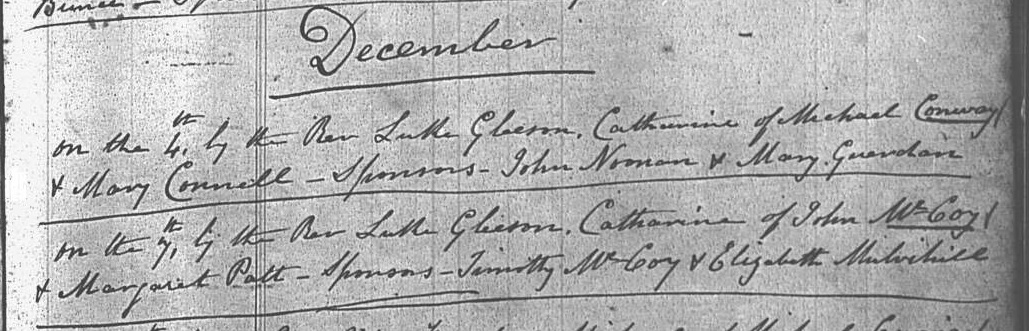 December
on the 4th, by the Rev Luke Gleeson, Catharine of Michael Conway
& Mary Connell - Sponsors - John Noonan & Mary Guerdan
on the 7th, by the Rev Luke Gleeson, Catharine of John McCoy
& Margaret Patt - Sponsors - Timothy McCoy & Elizabeth Mulvihill